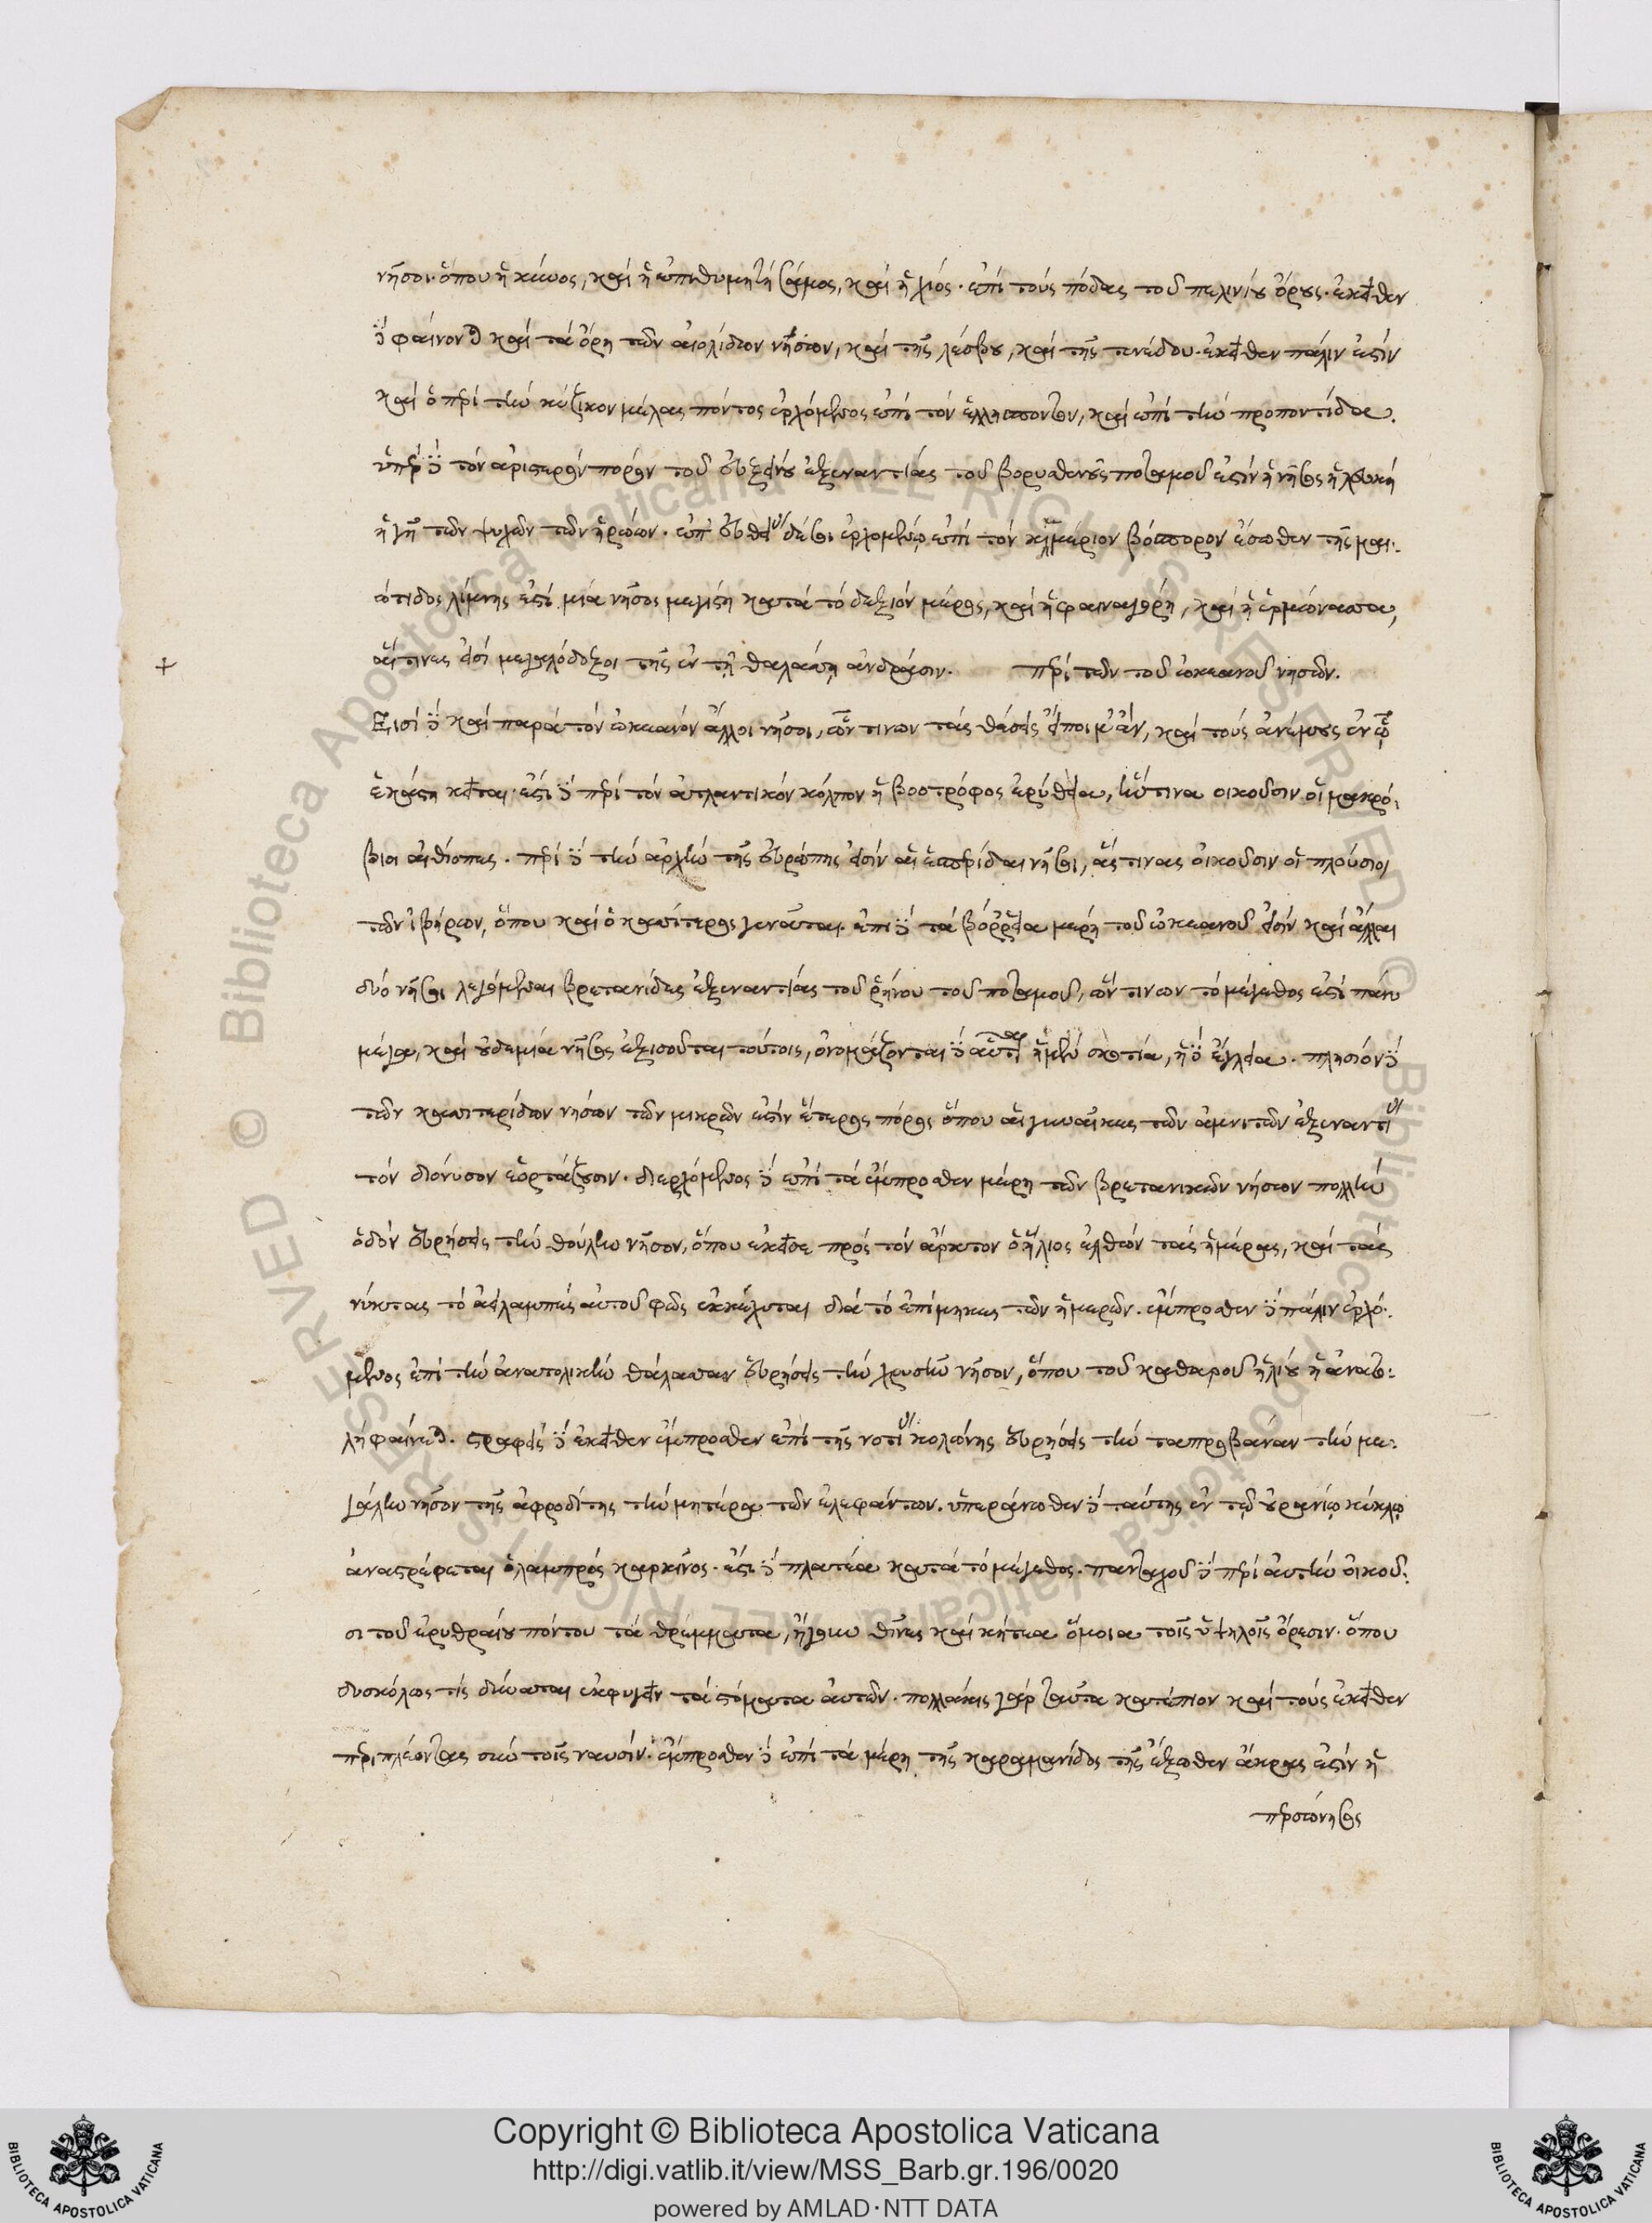 νῆσοι· ὅπου ἡ καῦνος, καὶ ἡ ἐπιθυμητὴ σάμος, καὶ ἡ χίος· ἐπὶ τοὺς πόδας τοῦ πελινίου ὄρους· ἐκεῖθεν
δὲ φαίνονται καὶ τὰ ὄρη τῶν αἰολίδων νήσων, καὶ τῆς λέσβου, καὶ τῆς τενέδου· ἐκεῖθεν πάλιν ἐστὶν
καὶ ὁ περὶ τὴν κύζικον μέλας πόντος ἐρχόμενος ἐπὶ τὸν ἑλλήσποντον, καὶ ἐπὶ τὴν προποντίδα.
ὑπὲρ δὲ τὸν ἀριστερὸν πόρον τοῦ εὐξείνου ἐξεναντίας τοῦ βορυσθενοῦς ποταμοῦ ἐστὶν ἡ νῆσος ἡ λευκὴ
ἡ γῆ τῶν ψυχῶν τῶν ἡρώων· ἐπ' εὐθείας δέ σοι ἐρχομένῳ ἐπὶ τὸν κιμμέριον βόσπορον ἔσωθεν τῆς μαι-
ώτιδος λίμνης ἐστὶ μία νῆσος μεγίστη κατὰ τὸ δεξιὸν μέρος, καὶ ἡ φαιναγόρη, καὶ ἡ ἑρμώνασσα,
αἵτινες εἰσὶ μεγαλόδοξοι τοῖς ἐν τῇ θαλάσσῃ ἀνδράσιν. περὶ τῶν τοῦ ὠκεανοῦ νησῶν.
Εἰσὶ δὲ καὶ παρὰ τὸν ὠκεανὸν ἄλλοι νῆσοι, ὧν τινων τὰς θέσεις εἴποιμ' ἂν, καὶ τοὺς ἀνέμους ἐν ᾧ
ἑκάστη κεῖται· ἐστὶ δὲ περὶ τὸν ἀτλαντικὸν κόλπον ἡ βοοτρόφος ἐρύθεια, ἥντινα οἰκοῦσιν οἱ μακρό-
βιοι αἰθίοπες. περὶ δὲ τὴν ἀρχὴν τῆς εὐρώπης εἰσὶν αἱ ἑσπερίδαι νῆσοι, ἅστινας οἰκοῦσιν οἱ πλούσιοι
τῶν ἰβήρων, ὅπου καὶ ὁ κασσίτερος γεννᾶται· ἐπὶ δὲ τὰ βόρρεια μέρη τοῦ ὠκεανοῦ εἰσὶν καὶ ἄλλαι
δύο νῆσοι λεγόμεναι βρετανίδες ἐξεναντίας τοῦ ῥήνου τοῦ ποταμοῦ, ὧν τινων τὸ μέγεθος ἐστὶ πάνυ
μέγα, καὶ οὐδεμία νῆσος ἐξισοῦται τούτοις, ὀνομάζονται δὲ αὗται ἡ μὲν σκοτία, ἡ δὲ ἐγλεία. πλησίον δὲ
τῶν κασσιτερίδων νήσων τῶν μικρῶν ἐστὶν ἕτερος πόρος ὅπου αἱ γυναῖκες τῶν ἀμνιτῶν ἐξεναντίας
τὸν διόνυσον ἑορτάζουσιν. διερχόμενος δὲ ἐπὶ τὰ ἔμπροσθεν μέρη τῶν βρετανικῶν νήσων πολλὴν
ὁδὸν εὑρήσεις τὴν θούλην νῆσον, ὅπου ἐκεῖσε πρὸς τὸν ἄρκτον ὁ ἥλιος ἐλθὼν τὰς ἡμέρας, καὶ τὰς
νύκτας τὸ ἀειλαμπὲς αὐτοῦ φῶς ἐκκέχυται διὰ τὸ ἐπίμηκες τῶν ἡμερῶν. ἔμπροσθεν δὲ πάλιν ἐρχό-
μενος ἐπὶ τὴν ἀνατολικὴν θάλασσαν εὑρήσεις τὴν χρυσῆν νῆσον, ὅπου τοῦ καθαροῦ ἡλίου ἡ ἀνατο-
λὴ φαίνεται. στραφεὶς δὲ ἐκεῖθεν ἔμπροσθεν ἐπὶ τῆς νοτίας κολώνης εὑρήσεις τὴν ταπροβάναν τὴν με-
γάλην νῆσον τῆς ἀφροδίτης τὴν μητέρα τῶν ἐλεφάντων. ὑπεράνωθεν δὲ ταύτης ἐν τῷ οὐρανίῳ κύκλῳ
ἀναστρέφεται ὁ λαμπρὸς καρκῖνος· ἐστὶ δὲ πλατέα κατὰ τὸ μέγεθος. πανταχοῦ δὲ περὶ αὐτὴν οἰκοῦ-
σι τοῦ ἐρυθραίου πόντου τὰ θρέμματα, ἤγουν θῖνες καὶ κήτεα ὅμοια τοῖς ὑψηλοῖς ὄρεσιν· ὅπου
δυσκόλως τὶς δύναται ἐκφυγεῖν τὰ στόματα αὐτῶν. πολλάκις γὰρ ταῦτα κατέπιον καὶ τοὺς ἐκεῖθεν
περιπλέοντας σὺν τοῖς ναυσίν. ἔμπροσθεν δὲ ἐπὶ τὰ μέρη τῆς καραμανίδος τῆς ἔξωθεν ἄκρας ἐστὶν ἡ
περσόνησος